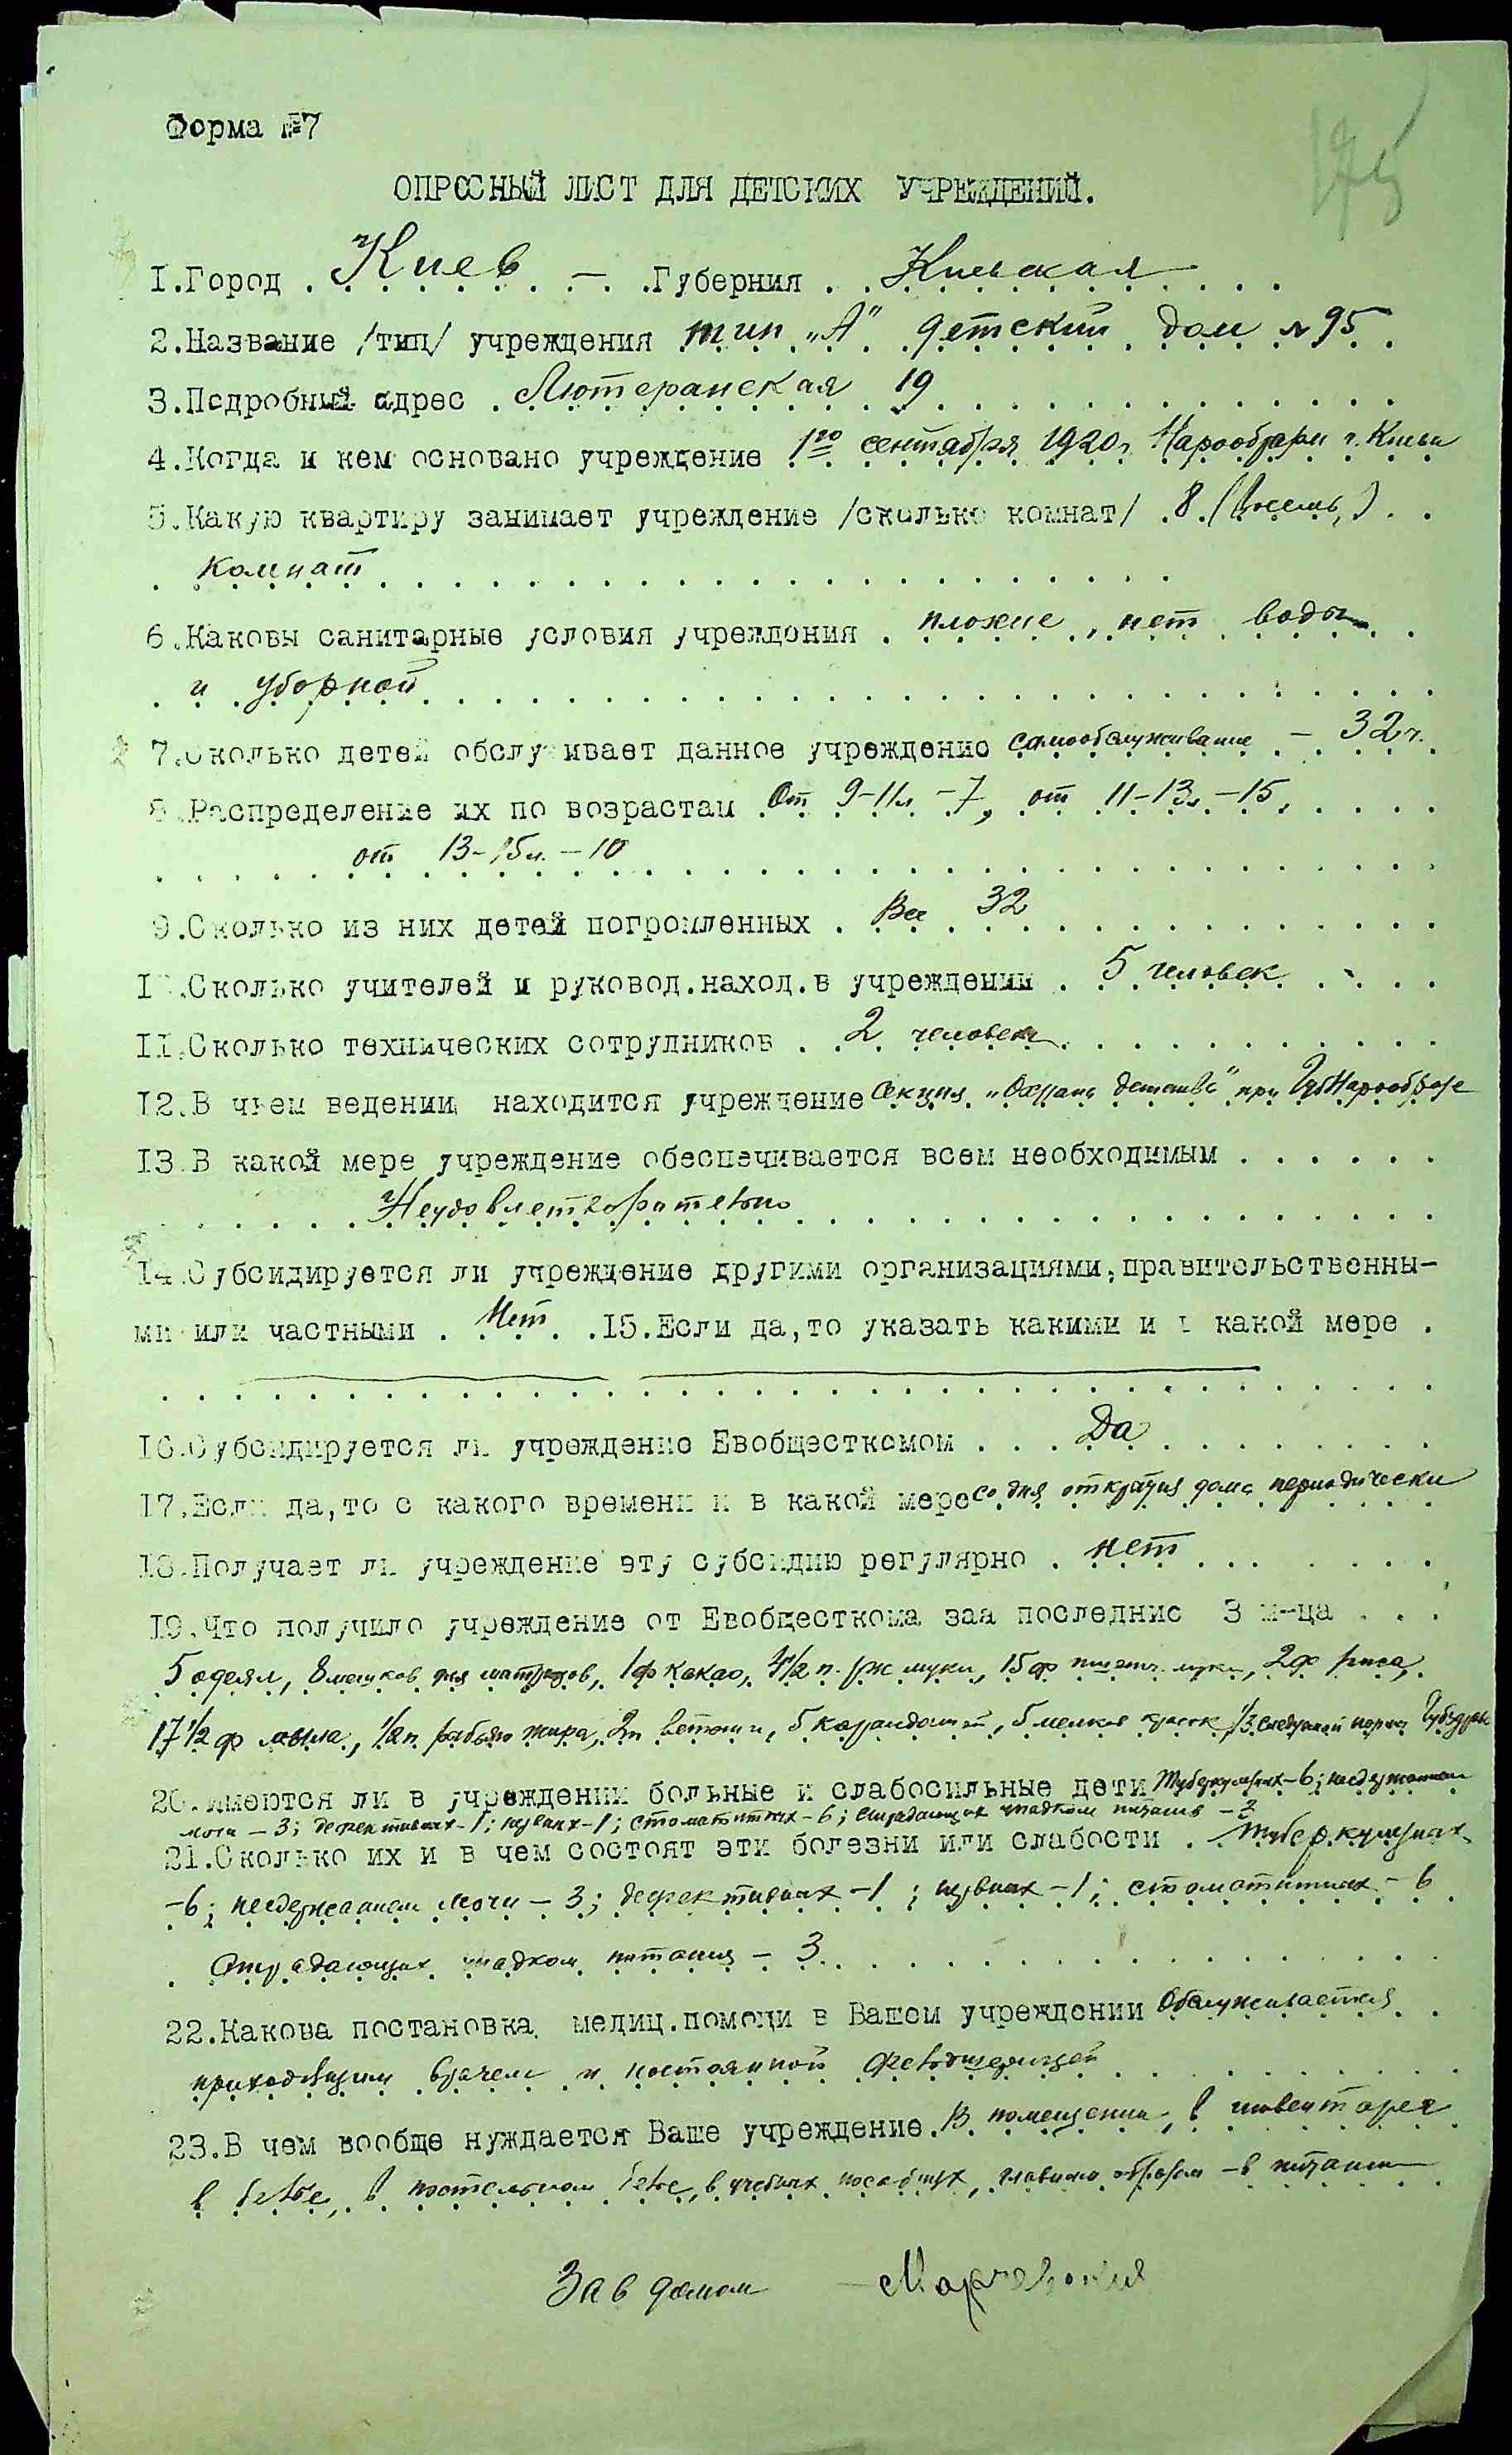 Форма №7
ОПРОСНЫЙ ЛИСТ ДЛЯ ДЕТСКИХ УЧРЕЖДЕНИЙ.
1.Город . Киев . – . .Губерния . . Киевская . . .
2.Название /тип/ учреждения тип „А" детский дом № 95 . .
3.Подробный адрес . Лютеранская 19 . . .
4.Когда и кем основано учреждение 1го сентября 1920г. Нарообразом г. Киева
5.Какую квартиру занимает учреждение /сколько комнат/ . 8 (восемь) . .
. комнат . . .
6.Каковы санитарные условия учреждения . плохие, нет воды . .
. и уборной . . .
7.Сколько детей обслуживает данное учреждение самообслуживание – 32 ч.
8.Распределение их по возрастам От 9-11л – 7, от 11-13л. – 15, . . .
. . . от 13-15л. – 10 . . .
9.Сколько из них детей погромленных . Все 32 . . .
10.Сколько учителей и руковод.наход.в учреждении . 5 человек . . .
11.Сколько технических сотрудников . . 2 человека . . .
12.В чьем ведении находится учреждение Секция „Охраны детства" при ГубНарообразе
13.В какой мере учреждение обеспечивается всем необходимым . . . . . .
. . . Неудовлетворительно . . .
14.Субсидируется ли учреждение другими организациями,правительственны-
ми или частными . Нет . .15.Если да,то указать какими и в какой мере .
16.Субсидируется ли учреждение Евобщесткомом . . . Да . . .
17.Если да,то с какого времени и в какой мере со дня открытия дома периодически
18.Получает ли учреждение эту субсидию регулярно . нет . . .
19.Что получило учреждение от Евобщесткома заа последние 3 м-ца . . .
5 одеял, 8 мешков для матрацов, 1ф какао, 4½ п. рж муки, 15ф пшенич. муки, 2ф риса,
17½ ф мыла, ½п рыбьяго жира, 2п ветоши, 5 карандашей, 5 мешков красок ⅓ следуемой нормы
20.Имеются ли в учреждении больные и слабосильные дети Туберкулезных – 6; недержанием
мочи – 3; дефективных – 1; нервных – 1; стоматитных – 6; страдающих упадком питания – 3
21.Сколько их и в чем состоят эти болезни или слабости . Туберкулезных
– 6; недержанием мочи – 3; дефективных – 1; нервных – 1; стоматитных – 6
. Страдающих упадком питания – 3 . . .
22.Какова постановка медиц.помощи в Вашем учреждении Обслуживается .
приходящим врачем и постоянной фельдшерицей . . .
23.В чем вообще нуждается Ваше учреждение. В помещении, в инвентаре
в белье, в постельном белье, в учебных пособиях, главным образом – в питании
Зав домом